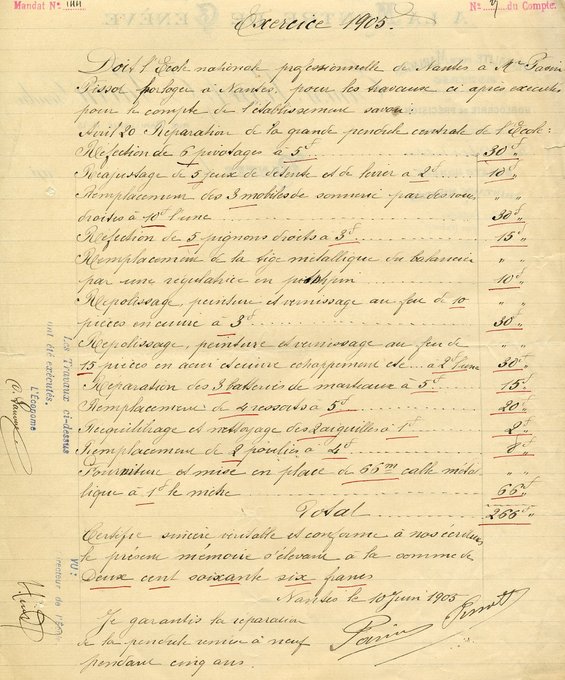 Mandat No
No 7 du Compte.
Exercice 1905.
Doit l'Ecole nationale professionnelle de Nantes à Mr
horloger à Nantes, pour les travaux ci après exécutés
pour le compte de l'établissement savoir
Avril 20 Réparation de la grande pendule centrale de l'Ecole:
Réfection de 6 pivotages à 5f 30f "
Réajustage de 5 jeux de détente et de levier à 2f 10f "
Remplacement des 3 mobiles de sonnerie par des roues " "
droites à 10f l'une 30f "
Réfection de 5 pignons droits à 3f 15f "
Remplacement de la tige métallique du balancier " "
par une régulatrice en pitchpin 10f "
Repolissage, peinture et vernissage au feu de 10 " "
pièces en cuivre à 3f 30f "
Repolissage, peinture et vernissage au feu de " "
15 pièces en acier et cuivre échappement etc à 2f l'une 30f "
Réparation des 3 batteries de marteaux à 5f 15f "
Remplacement de 4 ressorts à 5f 20f "
Rééquilibrage et nettoyage des 2 aiguilles à 1f 2f "
Remplacement de 2 poulies à 4f 8f "
Fourniture et mise en place de 66m cable métal " "
lique à 1f le mètre 66f "
Total 266f "
Certifié sincère véritable et conforme à nos écritures
le présent mémoire s'élevant à la somme de
Deux cent soixante six francs
Nantes le 10 Juin 1905
Je garantis la réparation
de la pendule remise à neuf
pendant cinq ans.
Les Travaux ci-dessus
ont été exécutés.
L'Econome
VU:
Directeur de l'Ecole